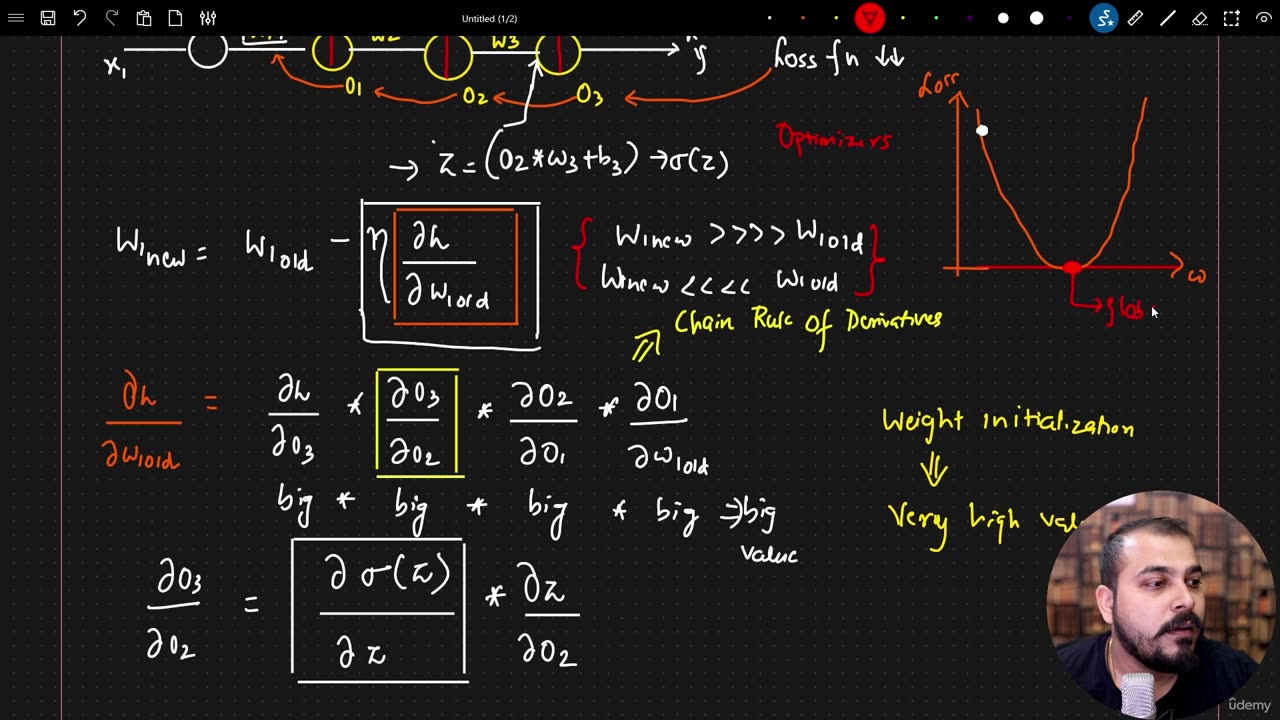 Untitled (1/2)
x₁ w2 w3 ŷ Loss fn ↓↓
O1 O2 O3
Loss
Optimizers
→ z = (O2 * w3 + b3) → σ(z)
W1new = W1old - η ∂L / ∂W1old
W1new >>>> W1old
W1new <<<< W1old
ω
glob
Chain Rule Of Derivatives
∂L / ∂w1old = ∂L / ∂O3 * ∂O3 / ∂O2 * ∂O2 / ∂O1 * ∂O1 / ∂w1old
big * big * big * big ⇒ big
value
Weight initialization
⇓
Very high
∂O3 / ∂O2 = ∂σ(z) / ∂z * ∂z / ∂O2
ûdemy